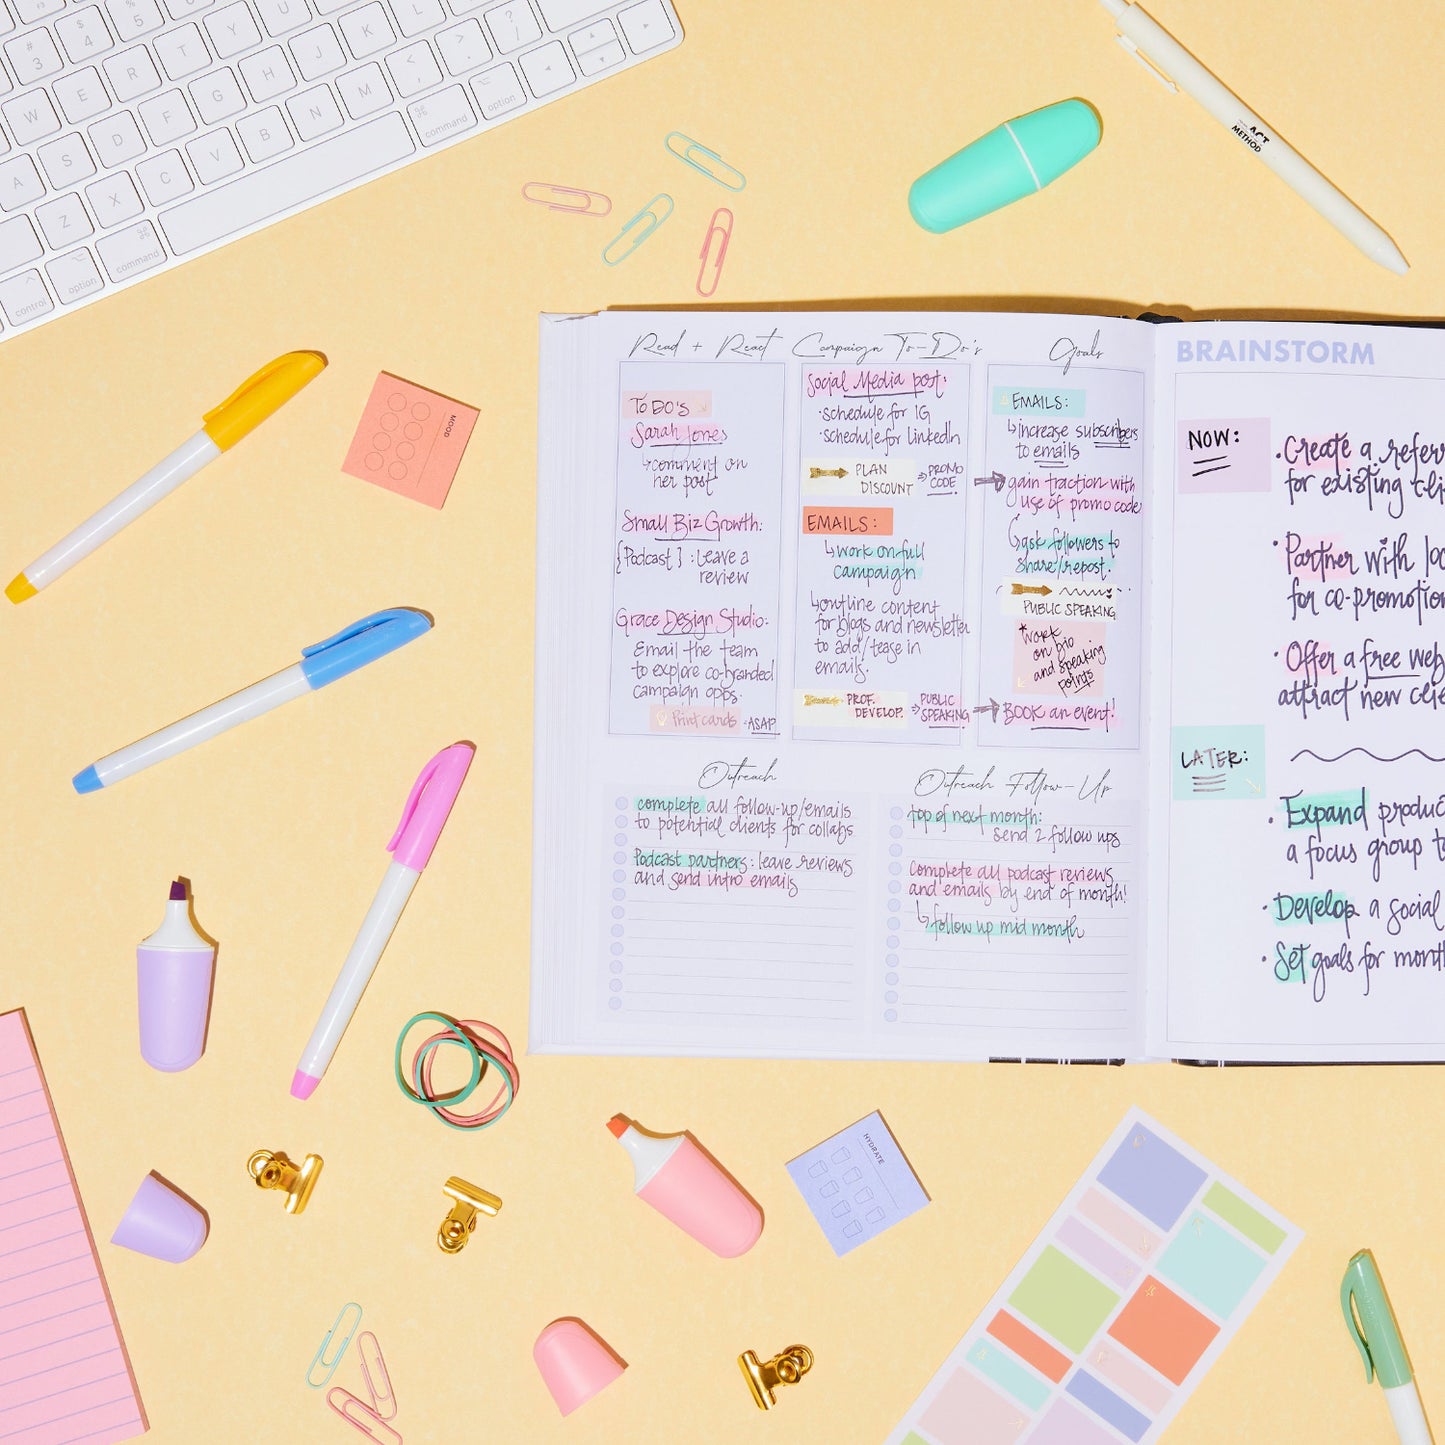 # 3
$ 4
% 5
W
E
R
T
Y
U
I
A
S
D
F
G
H
J
K
L
Z
X
C
V
B
N
M
< ,
> .
? /
control
option
command
command
option
ACT
METHOD
MOOD
Read + React
TO DO'S
Sarah Jones
comment on
her post
Small Biz Growth:
{Podcast}: Leave a
review
Grace Design Studio:
Email the team
to explore co-branded
campaign opps.
Print cards - ASAP
Campaign To-Do's
Social Media post:
• schedule for IG
• schedule for LinkedIn
PLAN
DISCOUNT
PROMO
CODE
EMAILS:
work on full
campaign
outline content
for blogs and newsletter
to add/tease in
emails.
PROF.
DEVELOP.
PUBLIC
SPEAKING
Goals
EMAILS:
increase subscribers
to emails
gain traction with
use of promo code
ask followers to
share/repost.
PUBLIC SPEAKING
*work
on bio
and speaking
points
BOOK an event!
Outreach
complete all follow-up/emails
to potential clients for collabs
Podcast partners: leave reviews
and send intro emails
Outreach Follow-Up
top of next month:
send 2 follow ups
Complete all podcast reviews
and emails by end of month!
follow up mid month
BRAINSTORM
NOW:
• Create a refer
for existing cli
• Partner with loc
for co-promotion
• Offer a free web
attract new clie
LATER:
• Expand produc
a focus group t
• Develop a social
• Set goals for mont
HYDRATE